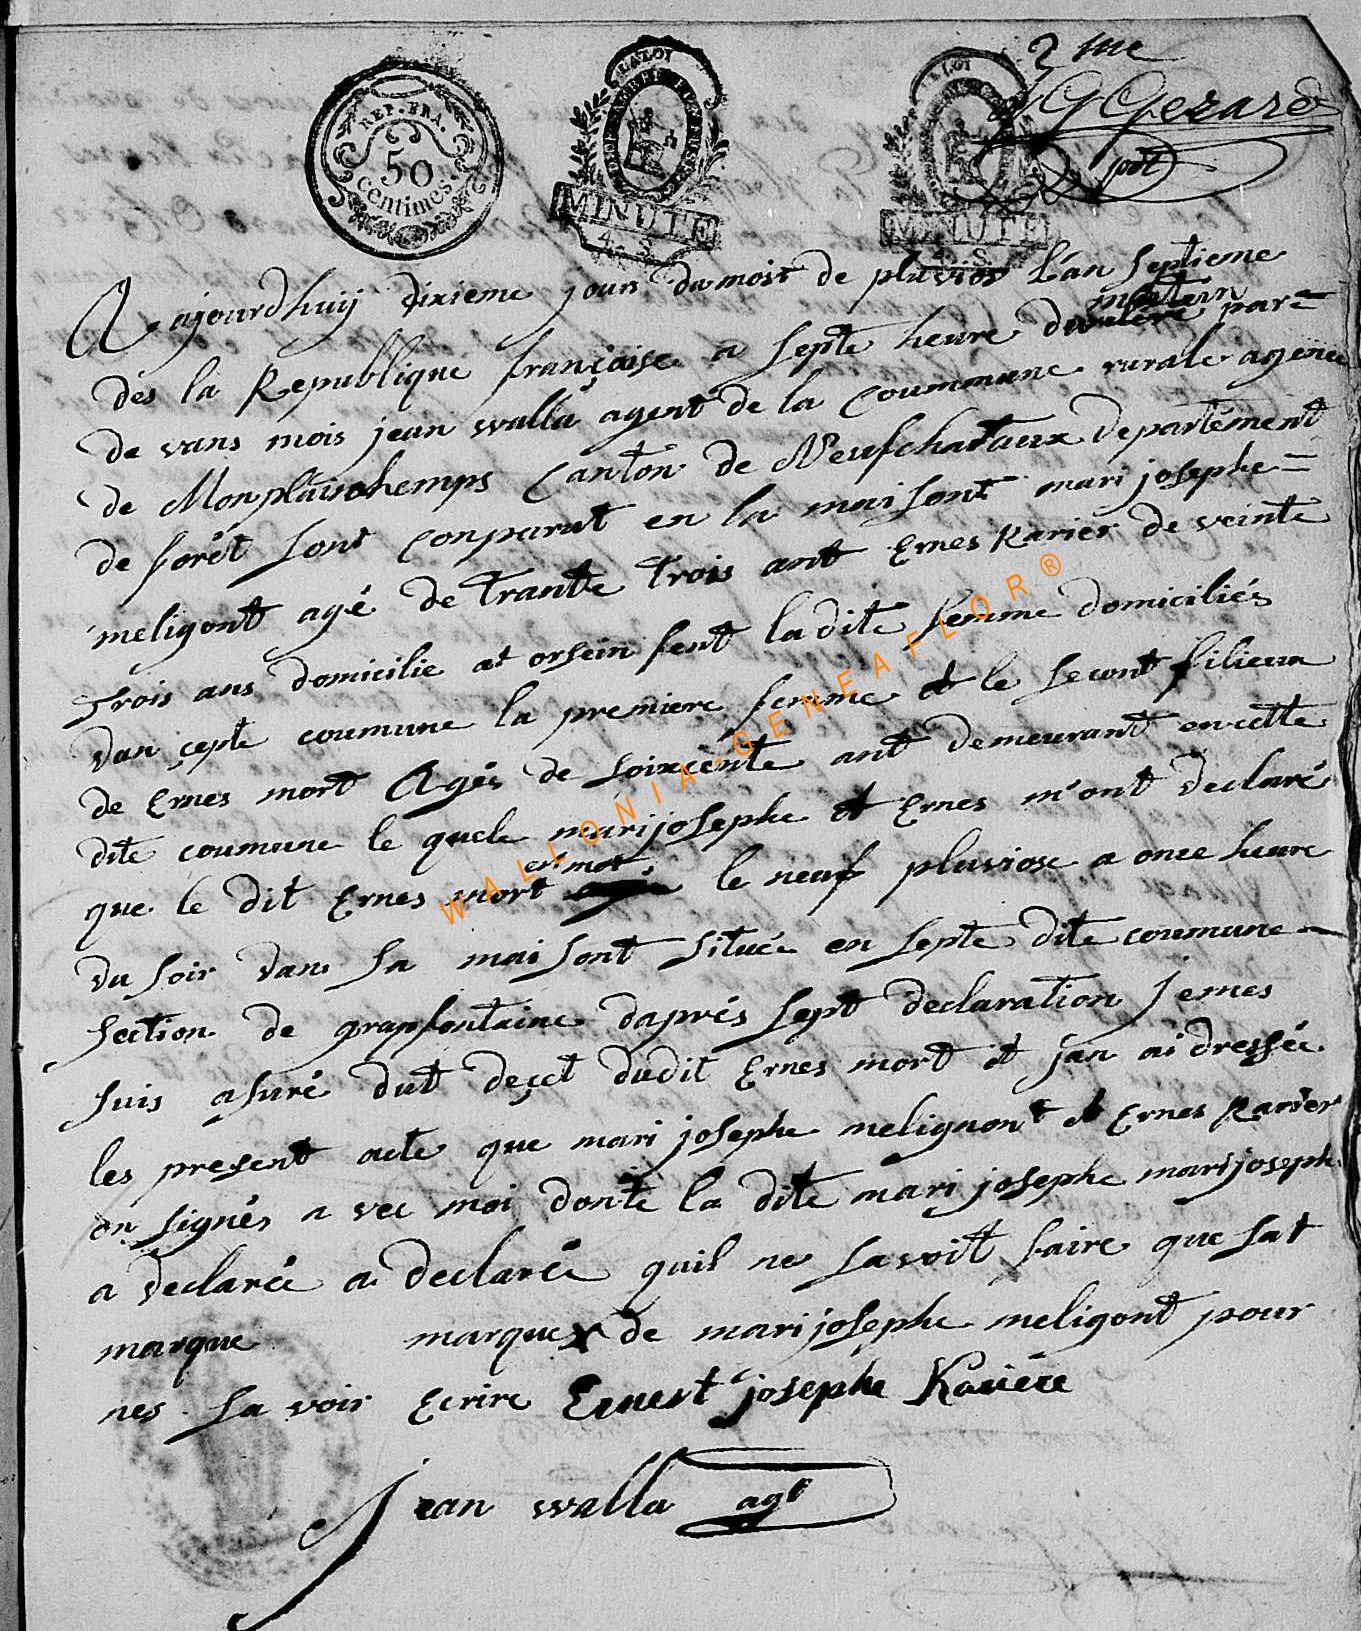 2me
G Gerard
pdt
REP. FRA.
50
centimes.
LA LOI
LA LOI
MINUTE
MINUTE
4. S.
4. S.
ajourdhuij dixieme jour du mois de pluvios L'an septieme
matein
des la Republique françoise a septe heure du par=
de vans mois jean walla agent de la Coummune rurale agence
de Monplainchemps Canton de Neufchataux departement
de forêt sont Conparut en la maisont mari josephe=
meligont agé de Trante Trois ant Ernes Ravier de veinte
Trois ans domicilie et orsein fent la dite femme domiciliés
dan cepte coumune la premiere femme et le secont filieux
de Ernes mort Agés de soixcente ant demeurant en cette
dite coumune le quele mari josephe et Ernes m'ont declaré
est mort
que le dit Ernes mort le neuf pluviose a once heure
du soir dans sa maisont située en septe dite coumune
section de grapfontaine daprés sept declaration jemes
suis asuré dut deçet dudit Ernes mort et jan ai dressée
les present acte que mari josephe melignont et Ernes Ravier
on signés a vec moi donte la dite mari josephe mari joseph
a declarée a declarée quil ne savoit faire que sat
marque marque x de mari josephe meligont pour
nes sa voir Ecrire Ernest josephe Raviére
jean walla agt
WALLONIA-GENEAFLOR®